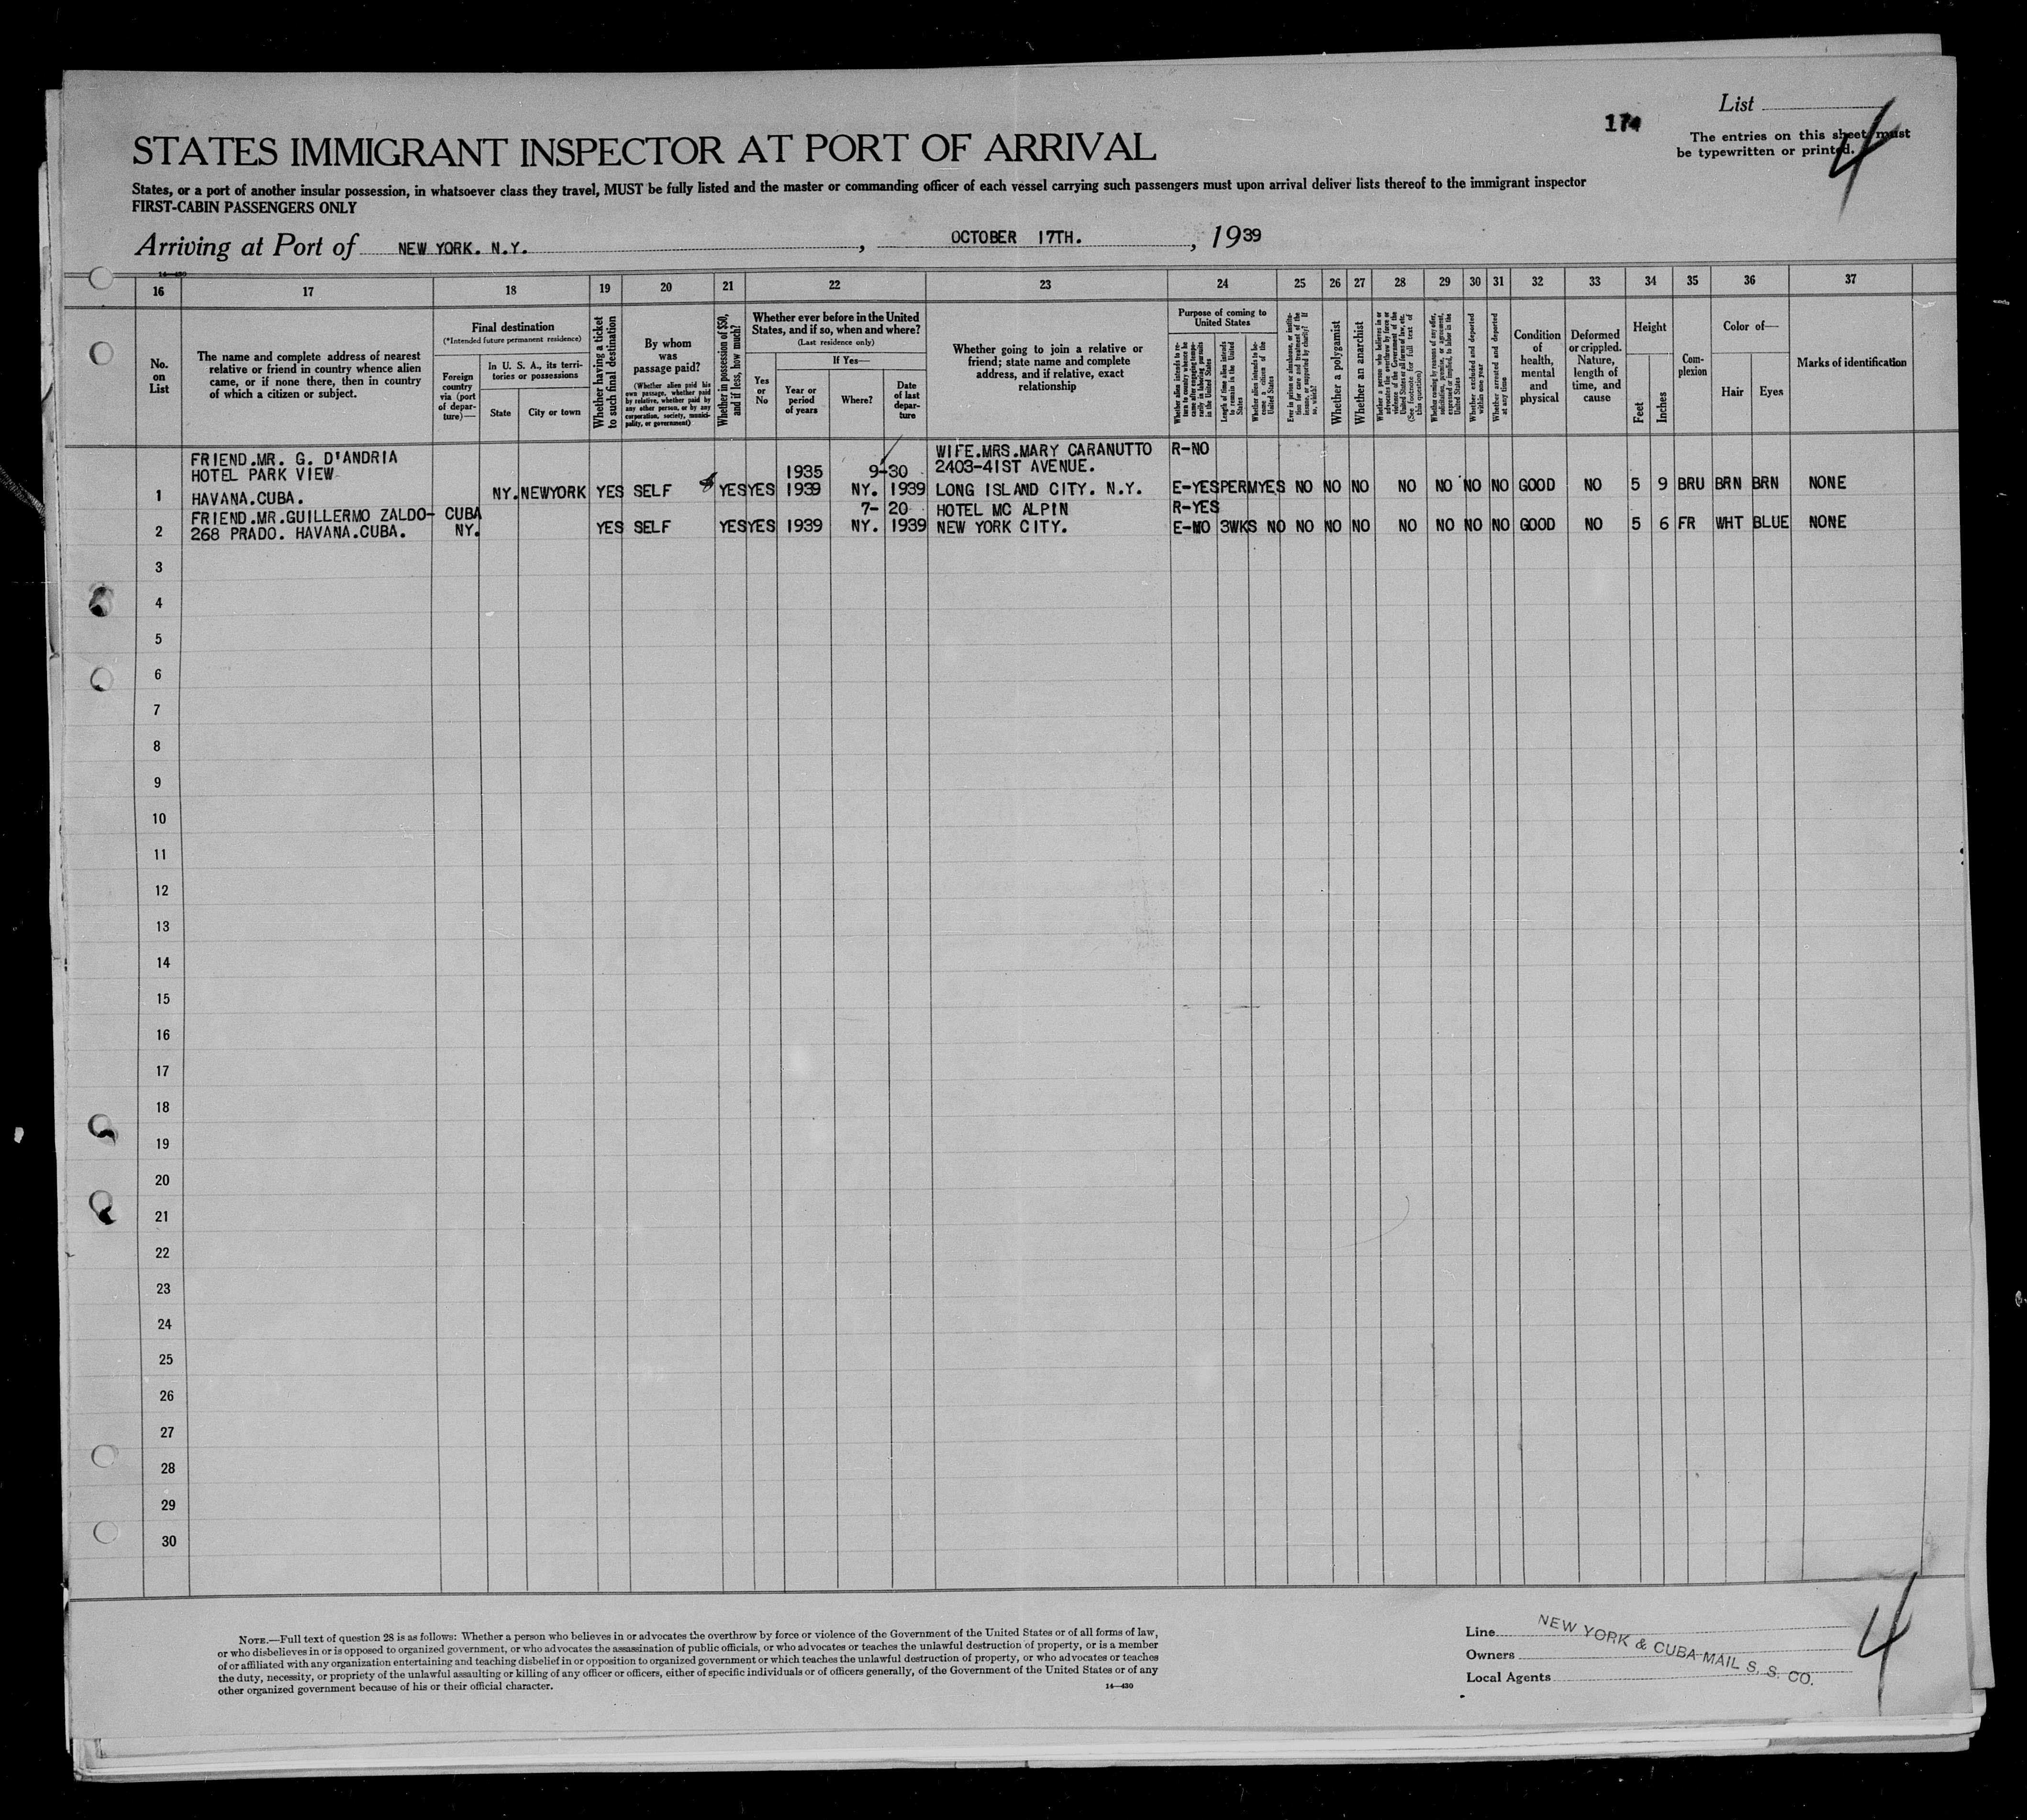 List
174
The entries on this sheet must
be typewritten or printed.
4
STATES IMMIGRANT INSPECTOR AT PORT OF ARRIVAL
States, or a port of another insular possession, in whatsoever class they travel, MUST be fully listed and the master or commanding officer of each vessel carrying such passengers must upon arrival deliver lists thereof to the immigrant inspector
FIRST-CABIN PASSENGERS ONLY
Arriving at Port of NEW YORK. N.Y. , OCTOBER 17TH. , 1939
14—430
16 17 18 19 20 21 22 23 24 25 26 27 28 29 30 31 32 33 34 35 36 37
No.
on
List
The name and complete address of nearest
relative or friend in country whence alien
came, or if none there, then in country
of which a citizen or subject.
Final destination
(*Intended future permanent residence)
Foreign
country
via (port
of depar-
ture)—
In U. S. A., its terri-
tories or possessions
State
City or town
Whether having a ticket
to such final destination
By whom
was
passage paid?
(Whether alien paid his
own passage, whether paid
by relative, whether paid by
any other person, or by any
corporation, society, munici-
pality, or government)
Whether in possession of $50,
and if less, how much?
Whether ever before in the United
States, and if so, when and where?
(Last residence only)
Yes
or
No
If Yes—
Year or
period
of years
Where?
Date
of last
depar-
ture
Whether going to join a relative or
friend; state name and complete
address, and if relative, exact
relationship
Purpose of coming to
United States
Whether alien intends to re-
turn to country whence he
came after engaging tempo-
rarily in laboring pursuits
in the United States
Length of time alien intends
to remain in the United
States
Whether alien intends to be-
come a citizen of the
United States
Ever in prison or almshouse, or institu-
tion for care and treatment of the
insane, or supported by charity? If
so, which?
Whether a polygamist
Whether an anarchist
Whether a person who believes in or
advocates the overthrow by force or
violence of the Government of the
United States or all forms of law, etc.
(See footnote for full text of
this question)
Whether coming by reasons of any offer,
solicitation, promise, or agreement,
expressed or implied, to labor in the
United States
Whether excluded and deported
within one year
Whether arrested and deported
at any time
Condition
of
health,
mental
and
physical
Deformed
or crippled.
Nature,
length of
time, and
cause
Height
Feet
Inches
Com-
plexion
Color of—
Hair
Eyes
Marks of identification
FRIEND.MR. G. D'ANDRIA WIFE.MRS.MARY CARANUTTO R-NO
HOTEL PARK VIEW 1935 9-30 2403-41ST AVENUE.
1 HAVANA.CUBA. NY. NEWYORK YES SELF YES YES 1939 NY. 1939 LONG ISLAND CITY. N.Y. E-YES PERM YES NO NO NO NO NO NO NO GOOD NO 5 9 BRU BRN BRN NONE
FRIEND.MR.GUILLERMO ZALDO- CUBA 7- 20 HOTEL MC ALPIN R-YES
2 268 PRADO. HAVANA.CUBA. NY. YES SELF YES YES 1939 NY. 1939 NEW YORK CITY. E-NO 3WKS NO NO NO NO NO NO NO NO GOOD NO 5 6 FR WHT BLUE NONE
3
4
5
6
7
8
9
10
11
12
13
14
15
16
17
18
19
20
21
22
23
24
25
26
27
28
29
30
NOTE.—Full text of question 28 is as follows: Whether a person who believes in or advocates the overthrow by force or violence of the Government of the United States or of all forms of law,
or who disbelieves in or is opposed to organized government, or who advocates the assassination of public officials, or who advocates or teaches the unlawful destruction of property, or is a member
of or affiliated with any organization entertaining and teaching disbelief in or opposition to organized government or which teaches the unlawful destruction of property, or who advocates or teaches
the duty, necessity, or propriety of the unlawful assaulting or killing of any officer or officers, either of specific individuals or of officers generally, of the Government of the United States or of any
other organized government because of his or their official character.
14—430
Line
Owners
Local Agents
NEW YORK & CUBA MAIL S. S. CO.
4